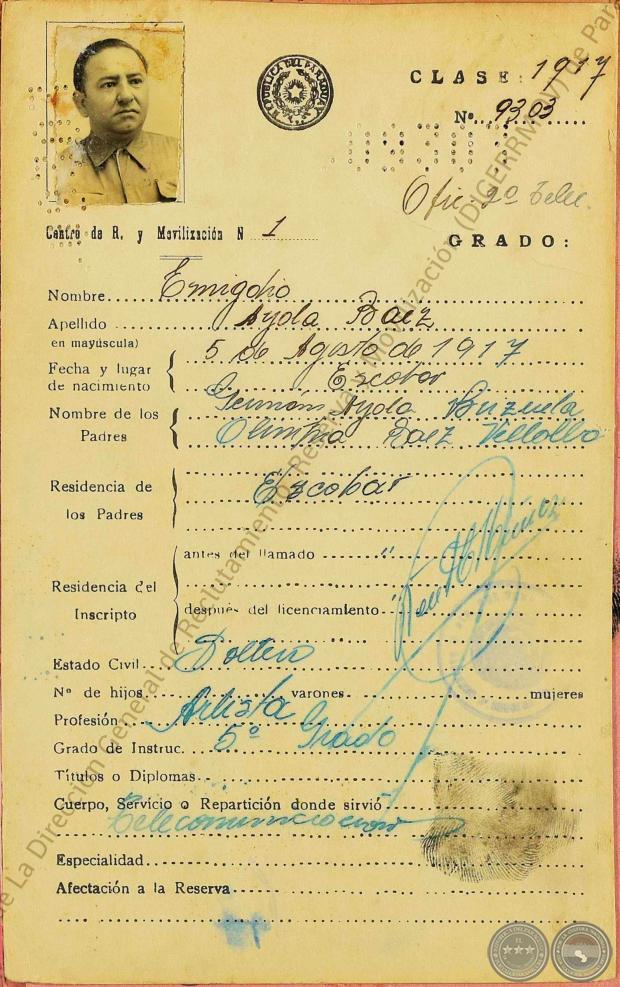 REPUBLICA DEL PARAGUAY
CLASE: 1917
Nº 9303
Ofic. 2º Telec.
Centro de R. y Movilización N 1
GRADO:
Nombre Emigdio
Apellido Ayala Baez
en mayúscula)
Fecha y lugar de nacimiento 5 de Agosto de 1917
Escobar
Nombre de los Padres Ayala
Olimpia Baez
Residencia de los Padres Escobar
Residencia del Inscripto
antes del llamado "
después del licenciamiento
Estado Civil Soltero
Nº de hijos varones mujeres
Profesión Artista
Grado de Instruc. 5º Grado
Títulos o Diplomas
Cuerpo, Servicio o Repartición donde sirvió
Telecomunicaciones
Especialidad
Afectación a la Reserva
de La Dirección General de Reclutamiento, Reserva y Movilización (DIGERRMOV) de Par